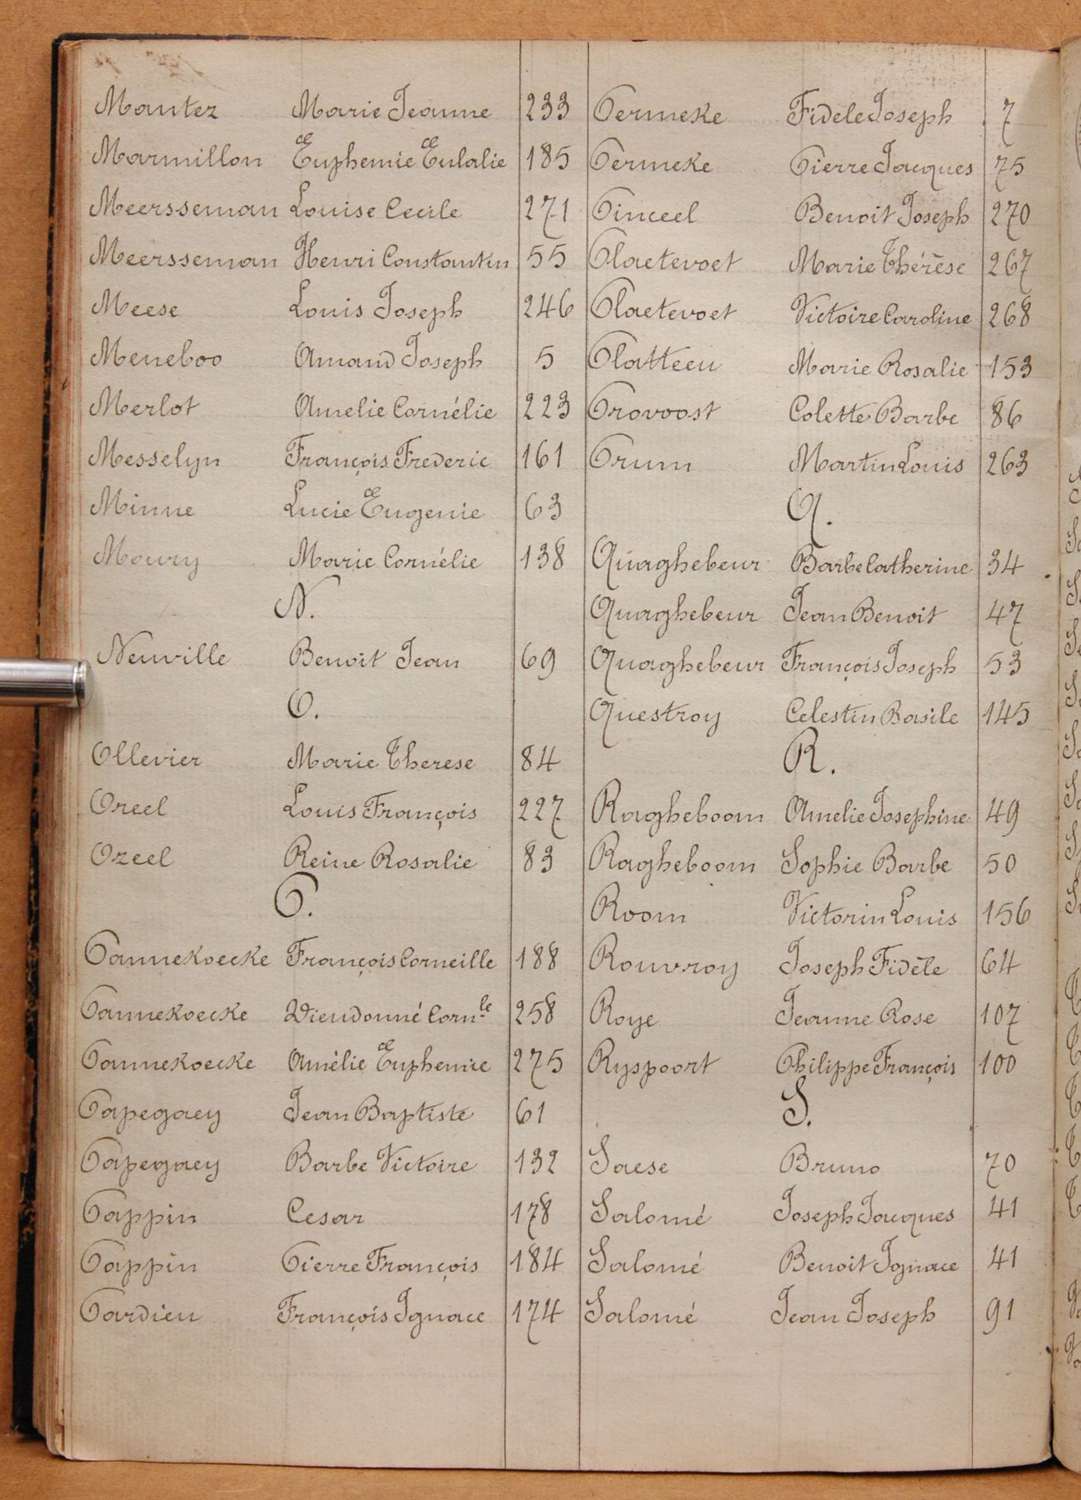 Mantez Marie Jeanne 233
Marmillon Euphemie Eulalie 185
Meersseman Louise Cecile 271
Meersseman Henri Constantin 55
Meese Louis Joseph 246
Meneboo Amand Joseph 5
Merlot Amelie Cornélie 223
Messelyn François Frederic 161
Minne Lucie Eugenie 63
Moury Marie Cornélie 138
N.
Neuville Benoit Jean 69
O.
Ollevier Marie Therese 84
Oreel Louis François 227
Ozeel Reine Rosalie 83
P.
Pannekoecke François Corneille 188
Pannekoecke Dieudonné Corn.le 258
Pannekoecke Amélie Euphemie 275
Papegaey Jean Baptiste 61
Papegaey Barbe Victoire 132
Pappin Cesar 178
Pappin Pierre François 184
Pardieu François Ignace 174
Permeke Fidele Joseph 7
Permeke Pierre Jacques 75
Pinceel Benoit Joseph 270
Plaetevoet Marie Thérèse 267
Plaetevoet Victoire Caroline 268
Platteeu Marie Rosalie 153
Provoost Colette Barbe 86
Prum Martin Louis 263
Q.
Quaghebeur Barbe Catherine 34
Quaghebeur Jean Benoit 47
Quaghebeur François Joseph 53
Questroy Celestin Basile 145
R.
Ragheboom Amelie Josephine 49
Ragheboom Sophie Barbe 50
Room Victorin Louis 156
Rouvroy Joseph Fidèle 64
Roye Jeanne Rose 107
Ryspoort Philippe François 100
S.
Saese Bruno 70
Salomé Joseph Jacques 41
Salomé Benoit Ignace 41
Salomé Jean Joseph 91